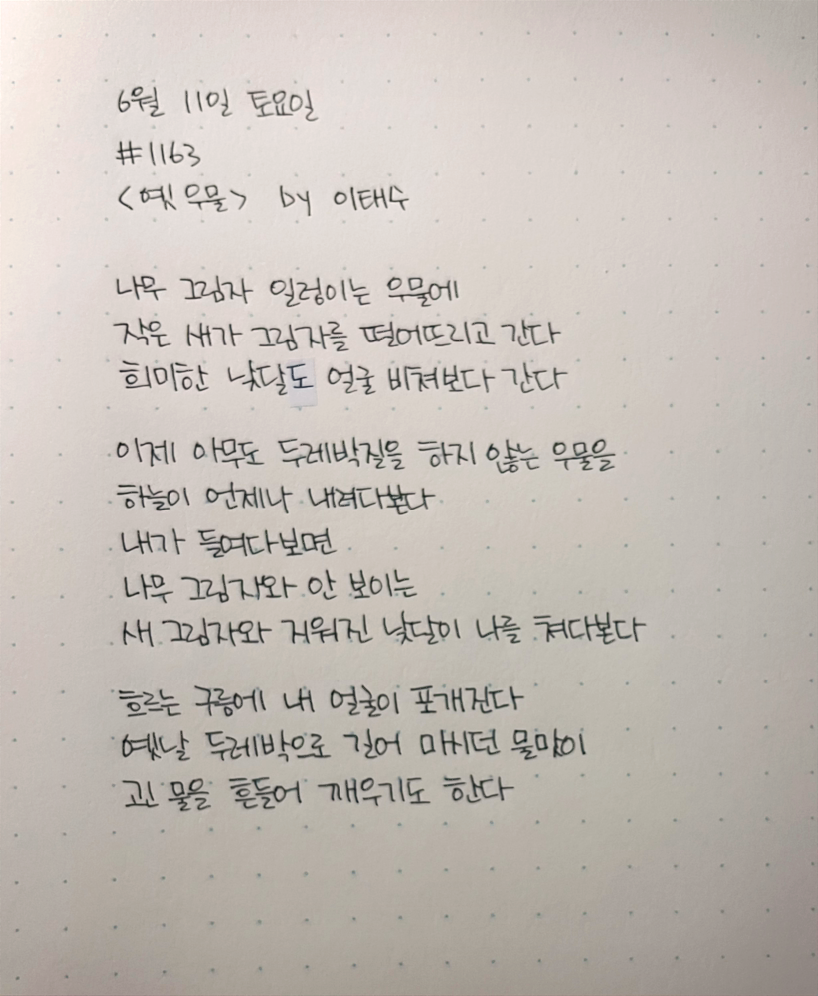 6월 11일 토요일
#1163
<옛 우물> by 이태수
나무 그림자 일렁이는 우물에
작은 새가 그림자를 떨어뜨리고 간다
희미한 낮달도 얼굴 비쳐보다 간다
이제 아무도 두레박질을 하지 않는 우물을
하늘이 언제나 내려다본다
내가 들여다보면
나무 그림자와 안 보이는
새 그림자와 지워진 낮달이 나를 쳐다본다
흐르는 구름에 내 얼굴이 포개진다
옛날 두레박으로 길어 마시던 물맛이
고인 물을 흔들어 깨우기도 한다